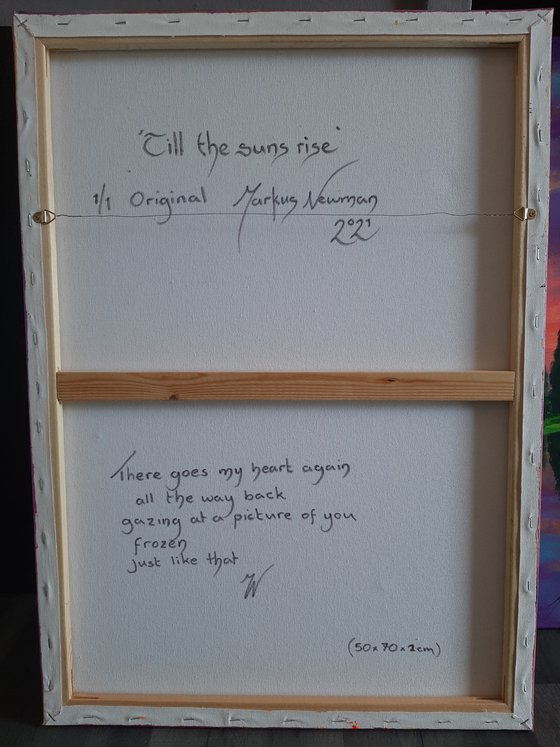 'Till the suns rise'
1/1 Original Markus Newman
2021
There goes my heart again
all the way back
gazing at a picture of you
frozen
just like that
(50x70x2cm)